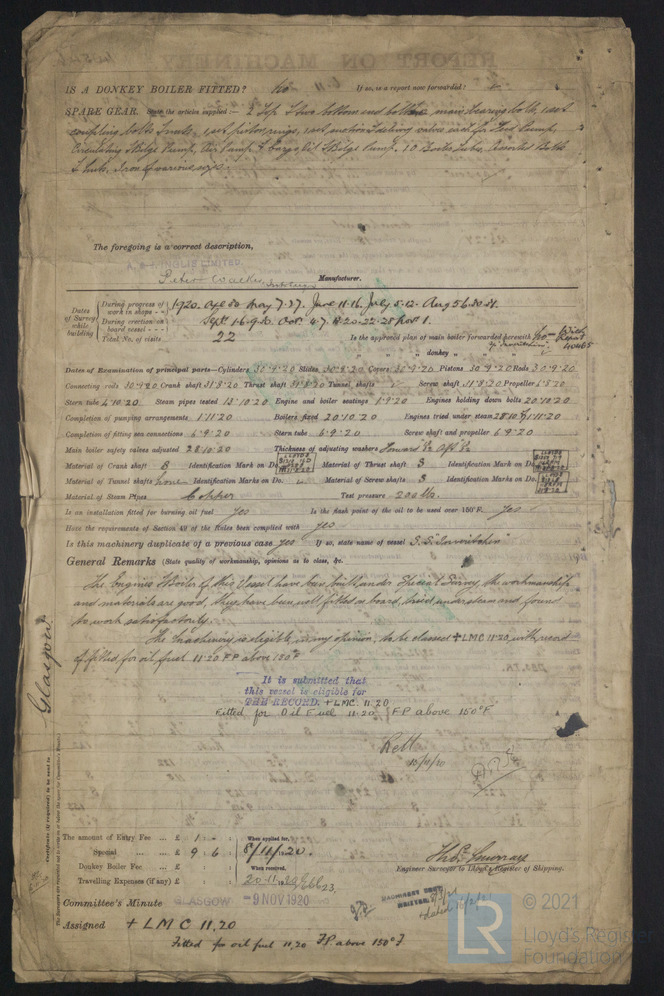 REPORT ON MACHINERY
IS A DONKEY BOILER FITTED? No If so, is a report now forwarded?
SPARE GEAR. State the articles supplied:— 2 Top & two bottom end bolts, main bearing bolts, 1 set
coupling bolts & nuts, 1 set piston rings, 1 set suction & delivery valves each for Feed Pump,
Circulating & Bilge Pump, Air Pump & Cargo Oil & Bilge Pump. 10 Boiler Tubes, Assorted Bolts
& Nuts, Iron of various sizes.
The foregoing is a correct description,
LIMITED.
Peter Manufacturer.
Dates of Survey while building
During progress of work in shops - - 1920. Apl 30 May 7.27. June 11.16. July 5.12. Aug 5.6.30.31.
During erection on board vessel - - - Sept. 1.6.9.30. Oct. 4.7. 20.22.28 Nov 1.
Total No. of visits 22 Is the approved plan of main boiler forwarded herewith No
" " " donkey " " "
Dates of Examination of principal parts—Cylinders 30.9.20 Slides 30.9.20 Covers 30.9.20 Pistons 30.9.20 Rods 30.9.20
Connecting rods 30.9.20 Crank shaft 31.8.20 Thrust shaft 31.8.20 Tunnel shafts Screw shaft 31.8.20 Propeller 6.8.20
Stern tube 4.10.20 Steam pipes tested 13.10.20 Engine and boiler seatings 1.9.20 Engines holding down bolts 20.10.20
Completion of pumping arrangements 1.11.20 Boilers fixed 20.10.20 Engines tried under steam 28.10 & 1.11.20
Completion of fitting sea connections 6.9.20 Stern tube 6.9.20 Screw shaft and propeller 6.9.20
Main boiler safety valves adjusted 28.10.20 Thickness of adjusting washers
Material of Crank shaft S Identification Mark on Do. Material of Thrust shaft S Identification Mark on Do.
Material of Tunnel shafts None Identification Marks on Do. Material of Screw shafts S Identification Marks on Do.
Material of Steam Pipes Copper Test pressure 200 lbs.
Is an installation fitted for burning oil fuel Yes Is the flash point of the oil to be used over 150°F. Yes
Have the requirements of Section 49 of the Rules been complied with Yes
Is this machinery duplicate of a previous case Yes If so, state name of vessel S.S.
General Remarks (State quality of workmanship, opinions as to class, &c.
The Engines & Boiler of this Vessel have been built under Special Survey, the workmanship
and materials are good, they have been well fitted on board, tried under steam and found
to work satisfactorily.
The Machinery is eligible, in my opinion, to be classed + LMC 11.20, with record
of fitted for oil fuel 11.20 FP above 150°F
It is submitted that
this vessel is eligible for
THE RECORD. + LMC. 11.20
Fitted for Oil Fuel 11.20 FP above 150°F
Glasgow
Certificate (if required) to be sent to
The amount of Entry Fee ... £ 1 : - : When applied for,
Special ... ... £ 9 : 6 : 8/11/1920.
Donkey Boiler Fee ... £ : : When received,
Travelling Expenses (if any) £ : : 20.11.20
Thos. Murray
Engineer Surveyor to Lloyd's Register of Shipping.
Committee's Minute GLASGOW -9 NOV 1920
Assigned + LMC 11.20
Fitted for oil fuel 11.20 FP above 150°F
MACHINERY CERT.
WRITTEN
LR
© 2021
Lloyd's Register
Foundation